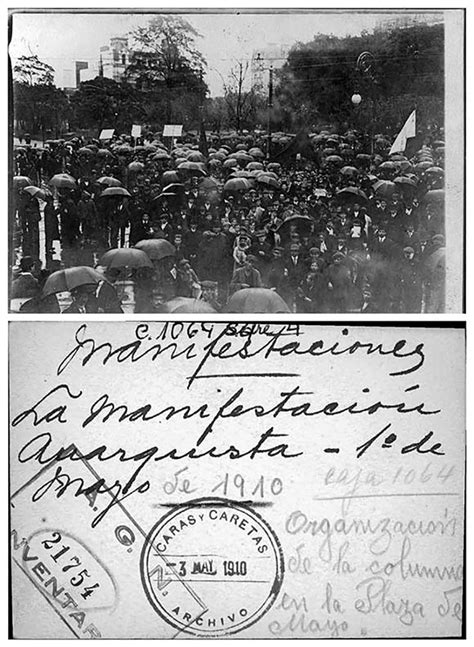 C.1064 Sobre 4
Manifestaciones
La Manifestación
Anarquista - 1º de
Mayo de 1910
caja 1064
A. G. N.
INVENTAR
21754
CARAS Y CARETAS
3 MAY. 1910
ARCHIVO
Organización
de la columna
en la Plaza de
Mayo